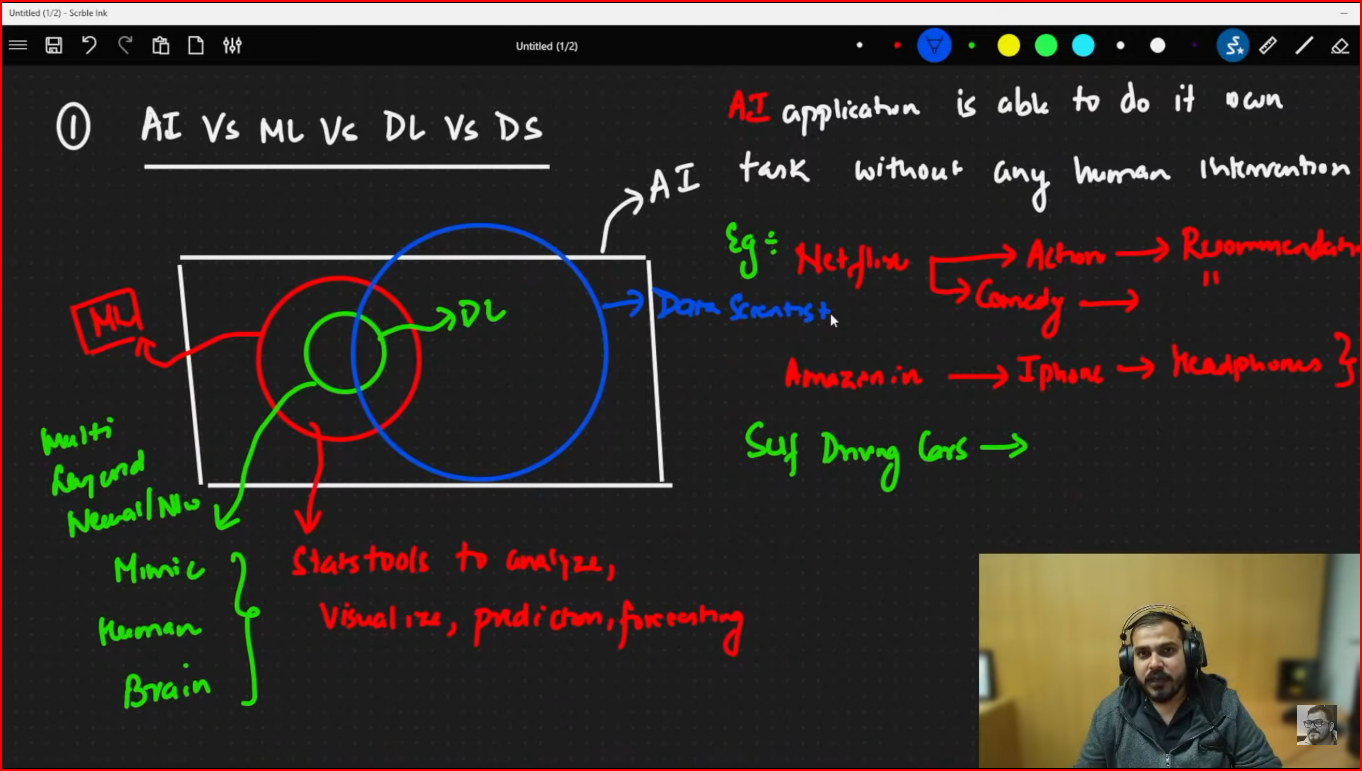 Untitled (1/2) - Scrble Ink
Untitled (1/2)
① AI Vs ML Vs DL Vs DS
AI
ML
DL
Data Scientist
Multi
Layered
Neural/N/w
Mimic
Human
Brain
Stats tools to analyze,
Visualize, prediction, forecasting
AI application is able to do it own
task without any human Intervention
Eg: Netflix → Action → Recommendati
→ Comedy → "
Amazon.in → Iphone → Headphones }
Self Driving Cars →